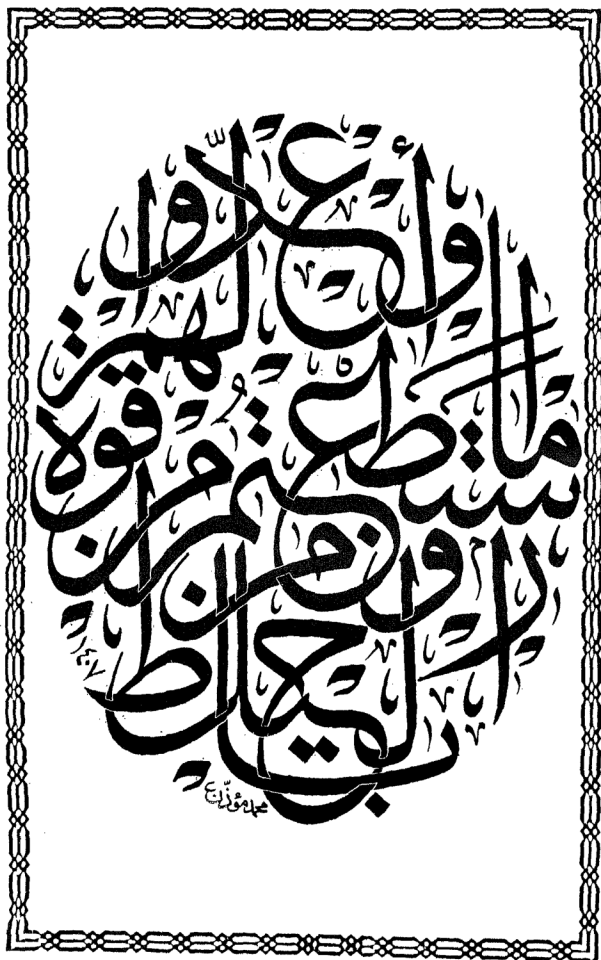 وأعدّوا لهم
ما استطعتم من قوة
ومن رباط الخيل
١٤٠٧
محمد مؤذن